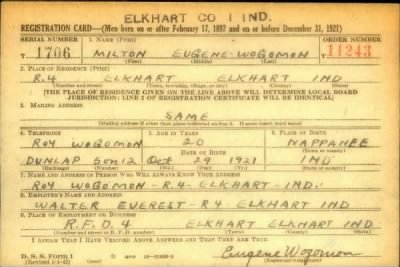 ELKHART CO 1 IND.
REGISTRATION CARD—(Men born on or after February 17, 1897 and on or before December 31, 1921)
SERIAL NUMBER 1. NAME (Print) ORDER NUMBER
T 1706 MILTON EUGENE WOGOMON 11243
(First) (Middle) (Last)
2. PLACE OF RESIDENCE (Print)
R.4 ELKHART ELKHART IND
(Number and street) (Town, township, village, or city) (County) (State)
[THE PLACE OF RESIDENCE GIVEN ON THE LINE ABOVE WILL DETERMINE LOCAL BOARD
JURISDICTION; LINE 2 OF REGISTRATION CERTIFICATE WILL BE IDENTICAL]
3. MAILING ADDRESS
SAME
[Mailing address if other than place indicated on line 2. If same insert word same]
4. TELEPHONE 5. AGE IN YEARS 6. PLACE OF BIRTH
ROY WOGOMON 20 NAPPANEE
DATE OF BIRTH
DUNLAP 50n12 Oct 29 1921 IND
(Exchange) (Number) (Mo.) (Day) (Yr.) (State or country)
7. NAME AND ADDRESS OF PERSON WHO WILL ALWAYS KNOW YOUR ADDRESS
ROY WOGOMON - R-4- ELKHART - IND.
8. EMPLOYER'S NAME AND ADDRESS
WALTER EVEREST - R-4 ELKHART IND
9. PLACE OF EMPLOYMENT OR BUSINESS
R.F.D. 4 ELKHART ELKHART IND
(Number and street or R. F. D. number) (Town) (County) (State)
I AFFIRM THAT I HAVE VERIFIED ABOVE ANSWERS AND THAT THEY ARE TRUE.
D. S. S. Form 1
Eugene Wogomon